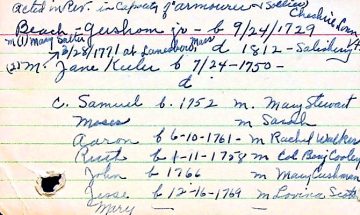 acted in Rev. in Capacity of armourer & Soldier
Cheshire Conn
Beach Gershom jr - b 9/24/1729
m(1) Mary
3/28/1771 at Lanesboro Mass d 1812 - Salisbury
(2) m. Jane Keeler b 7/24-1750 -
d
C. Samuel b. 1752 m. Mary Stewart
Moses m Sarah
Aaron b 6-10-1761 - m Rachel Walker
Rust b 1-11-1758 m Col Benj Cooley
John b 1766 m Mary Cushman
Jesse b 12-16-1769 m Lovina Scott
Mary — —